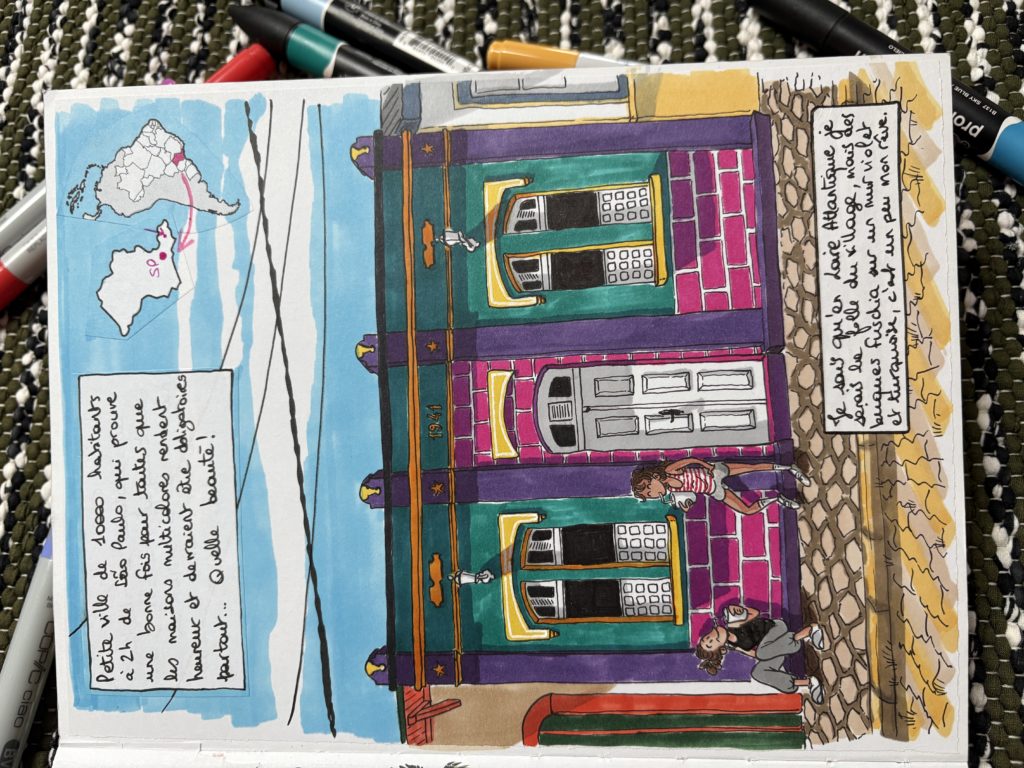 Petite ville de 10000 habitants
à 2h de São Paulo, qui prouve
une bonne fois pour toutes que
les maisons multicolores rendent
heureux et devraient être obligatoires
partout... Quelle beauté!
SP
1941
Je sais qu'en Loire Atlantique je
serais la folle du village, mais des
briques fushia sur un mur violet
et turquoise, c'est un peu mon rêve.
B137 SKY BLUE
pro